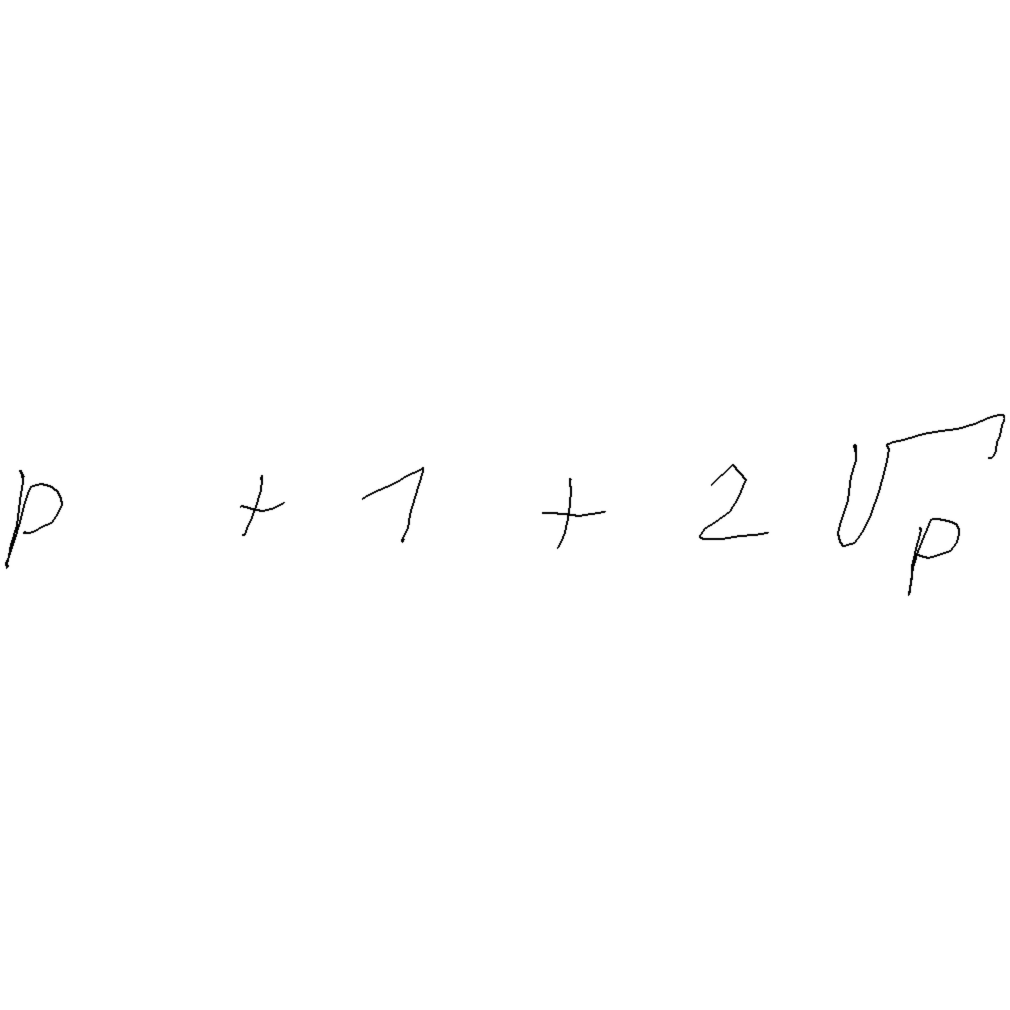 p + 1 + 2√p